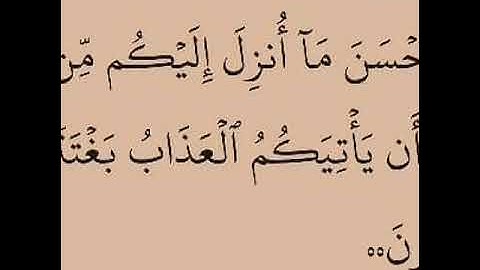 حۡسَنَ مَآ أُنزِلَ إِلَيۡكُم مِّن
أَن يَأۡتِيَكُمُ ٱلۡعَذَابُ بَغۡتَ
نَ ٥٥